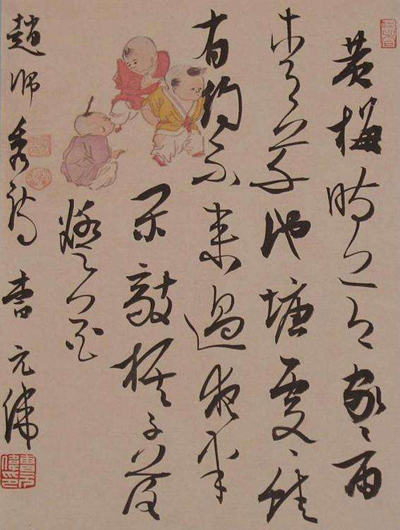 黄梅時節家〻雨
青草池塘處〻蛙
有約不来過夜半
閑敲棋子落
燈花
趙师秀詩 曹元偉